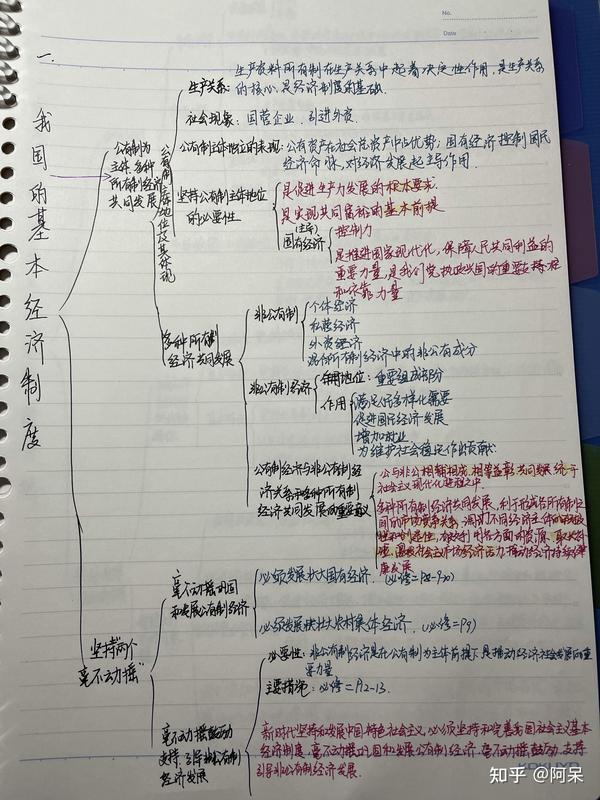 No.
Date
一.
我国的基本经济制度
公有制为
主体,多种
所有制经济
共同发展
公有制主体地位及其体现
生产关系:
生产资料所有制在生产关系中起着决定性作用,是生产关系
的核心,是经济制度的基础.
社会现象: 国营企业、引进外资.
公有制主体地位的表现: 公有资产在社会总资产中占优势; 国有经济控制国民
经济命脉,对经济发展起主导作用.
坚持公有制主体地位
的必要性
是促进生产力发展的根本要求
是实现共同富裕的基本前提
(主导)
国有经济
控制力
是推进国家现代化,保障人民共同利益的
重要力量,是我们党执政兴国的重要支柱
和依靠力量
多种所有制
经济共同发展
非公有制
个体经济
私营经济
外资经济
混合所有制经济中的非公有成分
非公有制经济
地位: 重要组成部分
作用
满足人民多样化需要
促进国民经济发展
增加就业
为维护社会稳定作出贡献.
公有制经济与非公有制经
济关系及多种所有制
经济共同发展的重要意义
公与非公相辅相成,相得益彰,共同发展,统一于
社会主义现代化进程之中.
多种所有制经济共同发展,利于形成各所有制之
间的市场竞争关系,调动不同经济主体的积极
性和创造性,有效利用各方面的资源,
激发社会主义市场经济活力,推动经济持续健
康发展
坚持"两个
毫不动摇"
毫不动摇巩固
和发展公有制经济
必须发展壮大国有经济. (必修二P8-P10)
必须发展壮大农村集体经济. (必修二P9)
毫不动摇鼓励
支持、引导非公有制
经济发展
必要性: 非公有制经济是在公有制为主体前提下,是推动经济社会发展的重
要力量
主要措施: 必修二P12-13.
新时代坚持和发展中国特色社会主义,必须坚持和完善我国社会主义基本
经济制度,毫不动摇巩固和发展公有制经济,毫不动摇鼓励、支持
引导非公有制经济发展.
KOKUYO
知乎 @阿呆